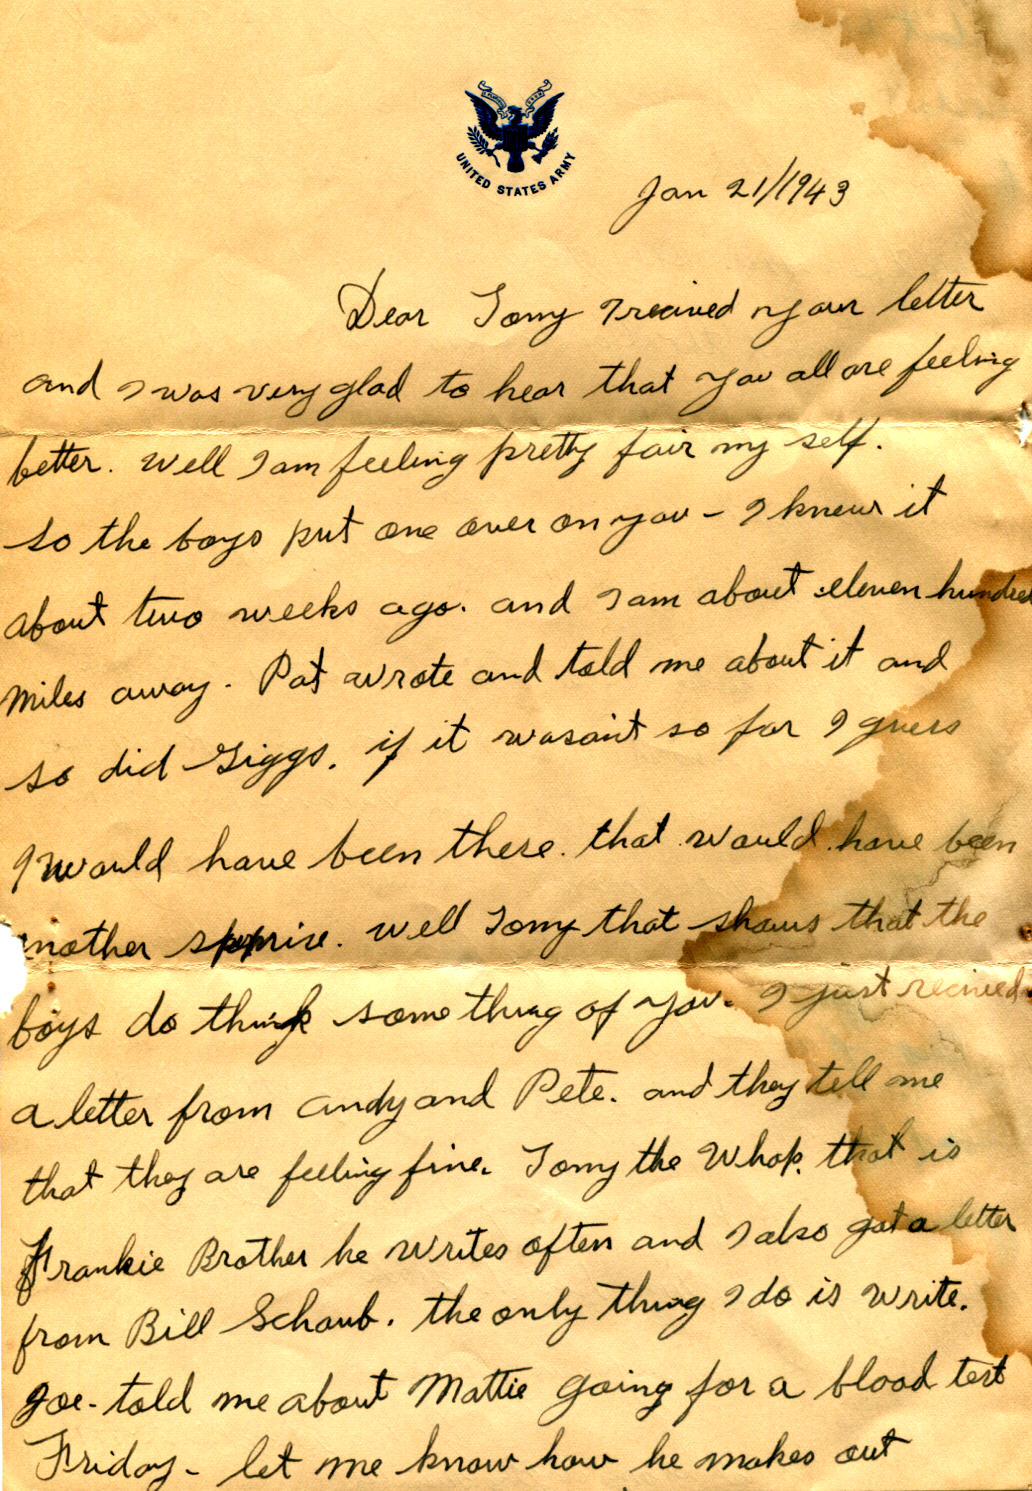 UNITED STATES ARMY
Jan 21/1943
Dear Tomy I recived your letter
and I was very glad to hear that you all are feeling
better. Well I am feeling pretty fair my self.
So the boys put one over on you - I knew it
about two weeks ago. and I am about eleven hundred
miles away. Pat wrote and told me about it and
so did Giggs. if it wasan't so far I guess
I would have been there. that would have been
another suprise. Well Tomy that shows that the
boys do think some thing of you. I just recived
a letter from Andy and Pete. and they tell me
that they are feeling fine. Tomy the Whop. that is
Frankie Brother he writes often and I also got a letter
from Bill Schaub. the only thing I do is write.
Joe - told me about Mattie going for a blood test
Friday - let me know how he makes out